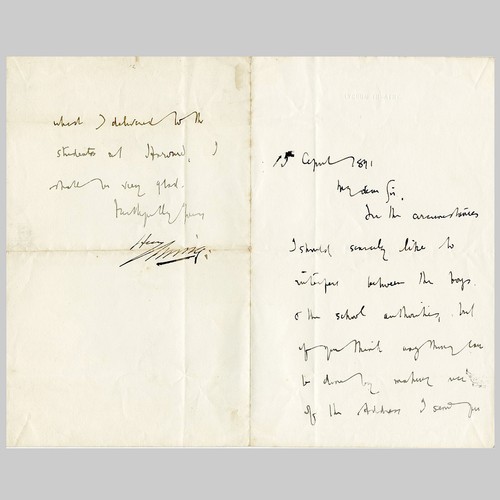 15 April 1891
My dear Sir,
In the circumstances
I should scarcely like to
interfere between the boys
& the school authorities, but
if you think anything can
be done by making use
of the Address I send you
which I delivered to the
students at Harvard, I
shall be very glad.
Faithfully yours
Henry Irving